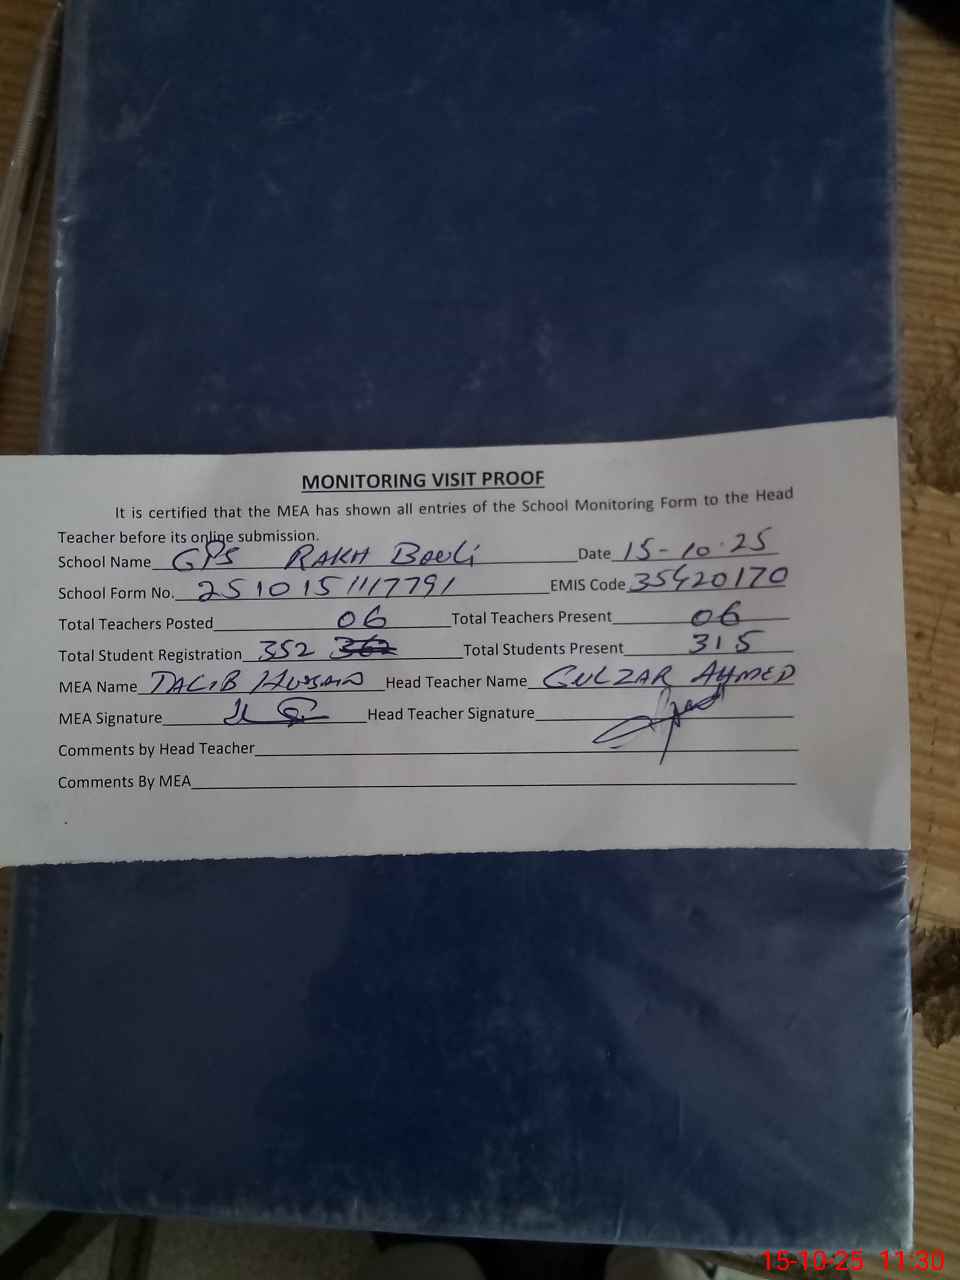 MONITORING VISIT PROOF
It is certified that the MEA has shown all entries of the School Monitoring Form to the Head
Teacher before its online submission.
School Name GPS RAKH Bouli Date 15-10-25
School Form No. 2510151117791 EMIS Code 35420170
Total Teachers Posted 06 Total Teachers Present 06
Total Student Registration 352 362 Total Students Present 315
MEA Name TALIB HUSSAIN Head Teacher Name GULZAR AHMED
MEA Signature Head Teacher Signature
Comments by Head Teacher
Comments By MEA
15-10-25 11:30